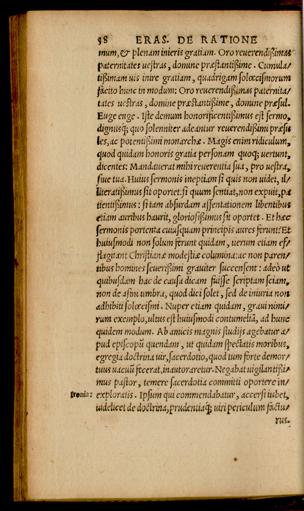 58 ERAS. DE RATIONE
mum, & plenam inieris gratiam. Oro reuerendißimas
paternitates uestras, domine præstantißime. Cumula/
tißimam uis inire gratiam, quadrigam solœcismorum
facito hunc in modum: Oro reuerendißimas paternita/
tes uestras, domine præstantißime, domine præsul.
Euge euge. Iste demum honorificentißimus est sermo,
dignusq; quo solenniter adeantur reuerendißimi præsu
les, ac potentißimi monarchæ. Magis enim ridiculum,
quod quidam honoris gratia personam quoq; uertunt,
dicentes: Mandauerat mihi reuerentia sua, pro uestra,
siue tua. Huius sermonis ineptiam si quis non uidet, il/
literatißimus sit oportet. si quum sentiat, non expuit, pa
tientißimus: si tam absurdam assentationem libentibus
etiam auribus haurit, gloriosißimus sit oportet. Et hæc
sermonis portenta cuiusquam principis aures ferunt? Et
huiusmodi non solum ferunt quidam, uerum etiam ef/
flagitant Christianæ modestiæ columina: ac non paren/
tibus homines seuerißimi grauiter succensent: adeò ut
quibusdam hac de causa dicam fuisse scriptam sciam,
non de asini umbra, quod dici solet, sed de iniuria non
adhibiti solœcismi. Nuper etiam quidam, graui nimi/
rum exemplo, ultus est huiusmodi contumeliã, ad hunc
quidem modum. Ab amicis magnis studijs agebatur a/
pud episcopũ quendam, ut quidam spectatis moribus,
egregia doctrina uir, sacerdotio, quod tum forte demor/
tuus uacuũ fecerat, inautoraretur. Negabat uigilantißi/
mus pastor, temere sacerdotia committi oportere in/
Ironia: exploratis. Ipsum qui commendabatur, accersi iubet,
uidelicet de doctrina, prudentiaq; uiri periculum factu/
rus.